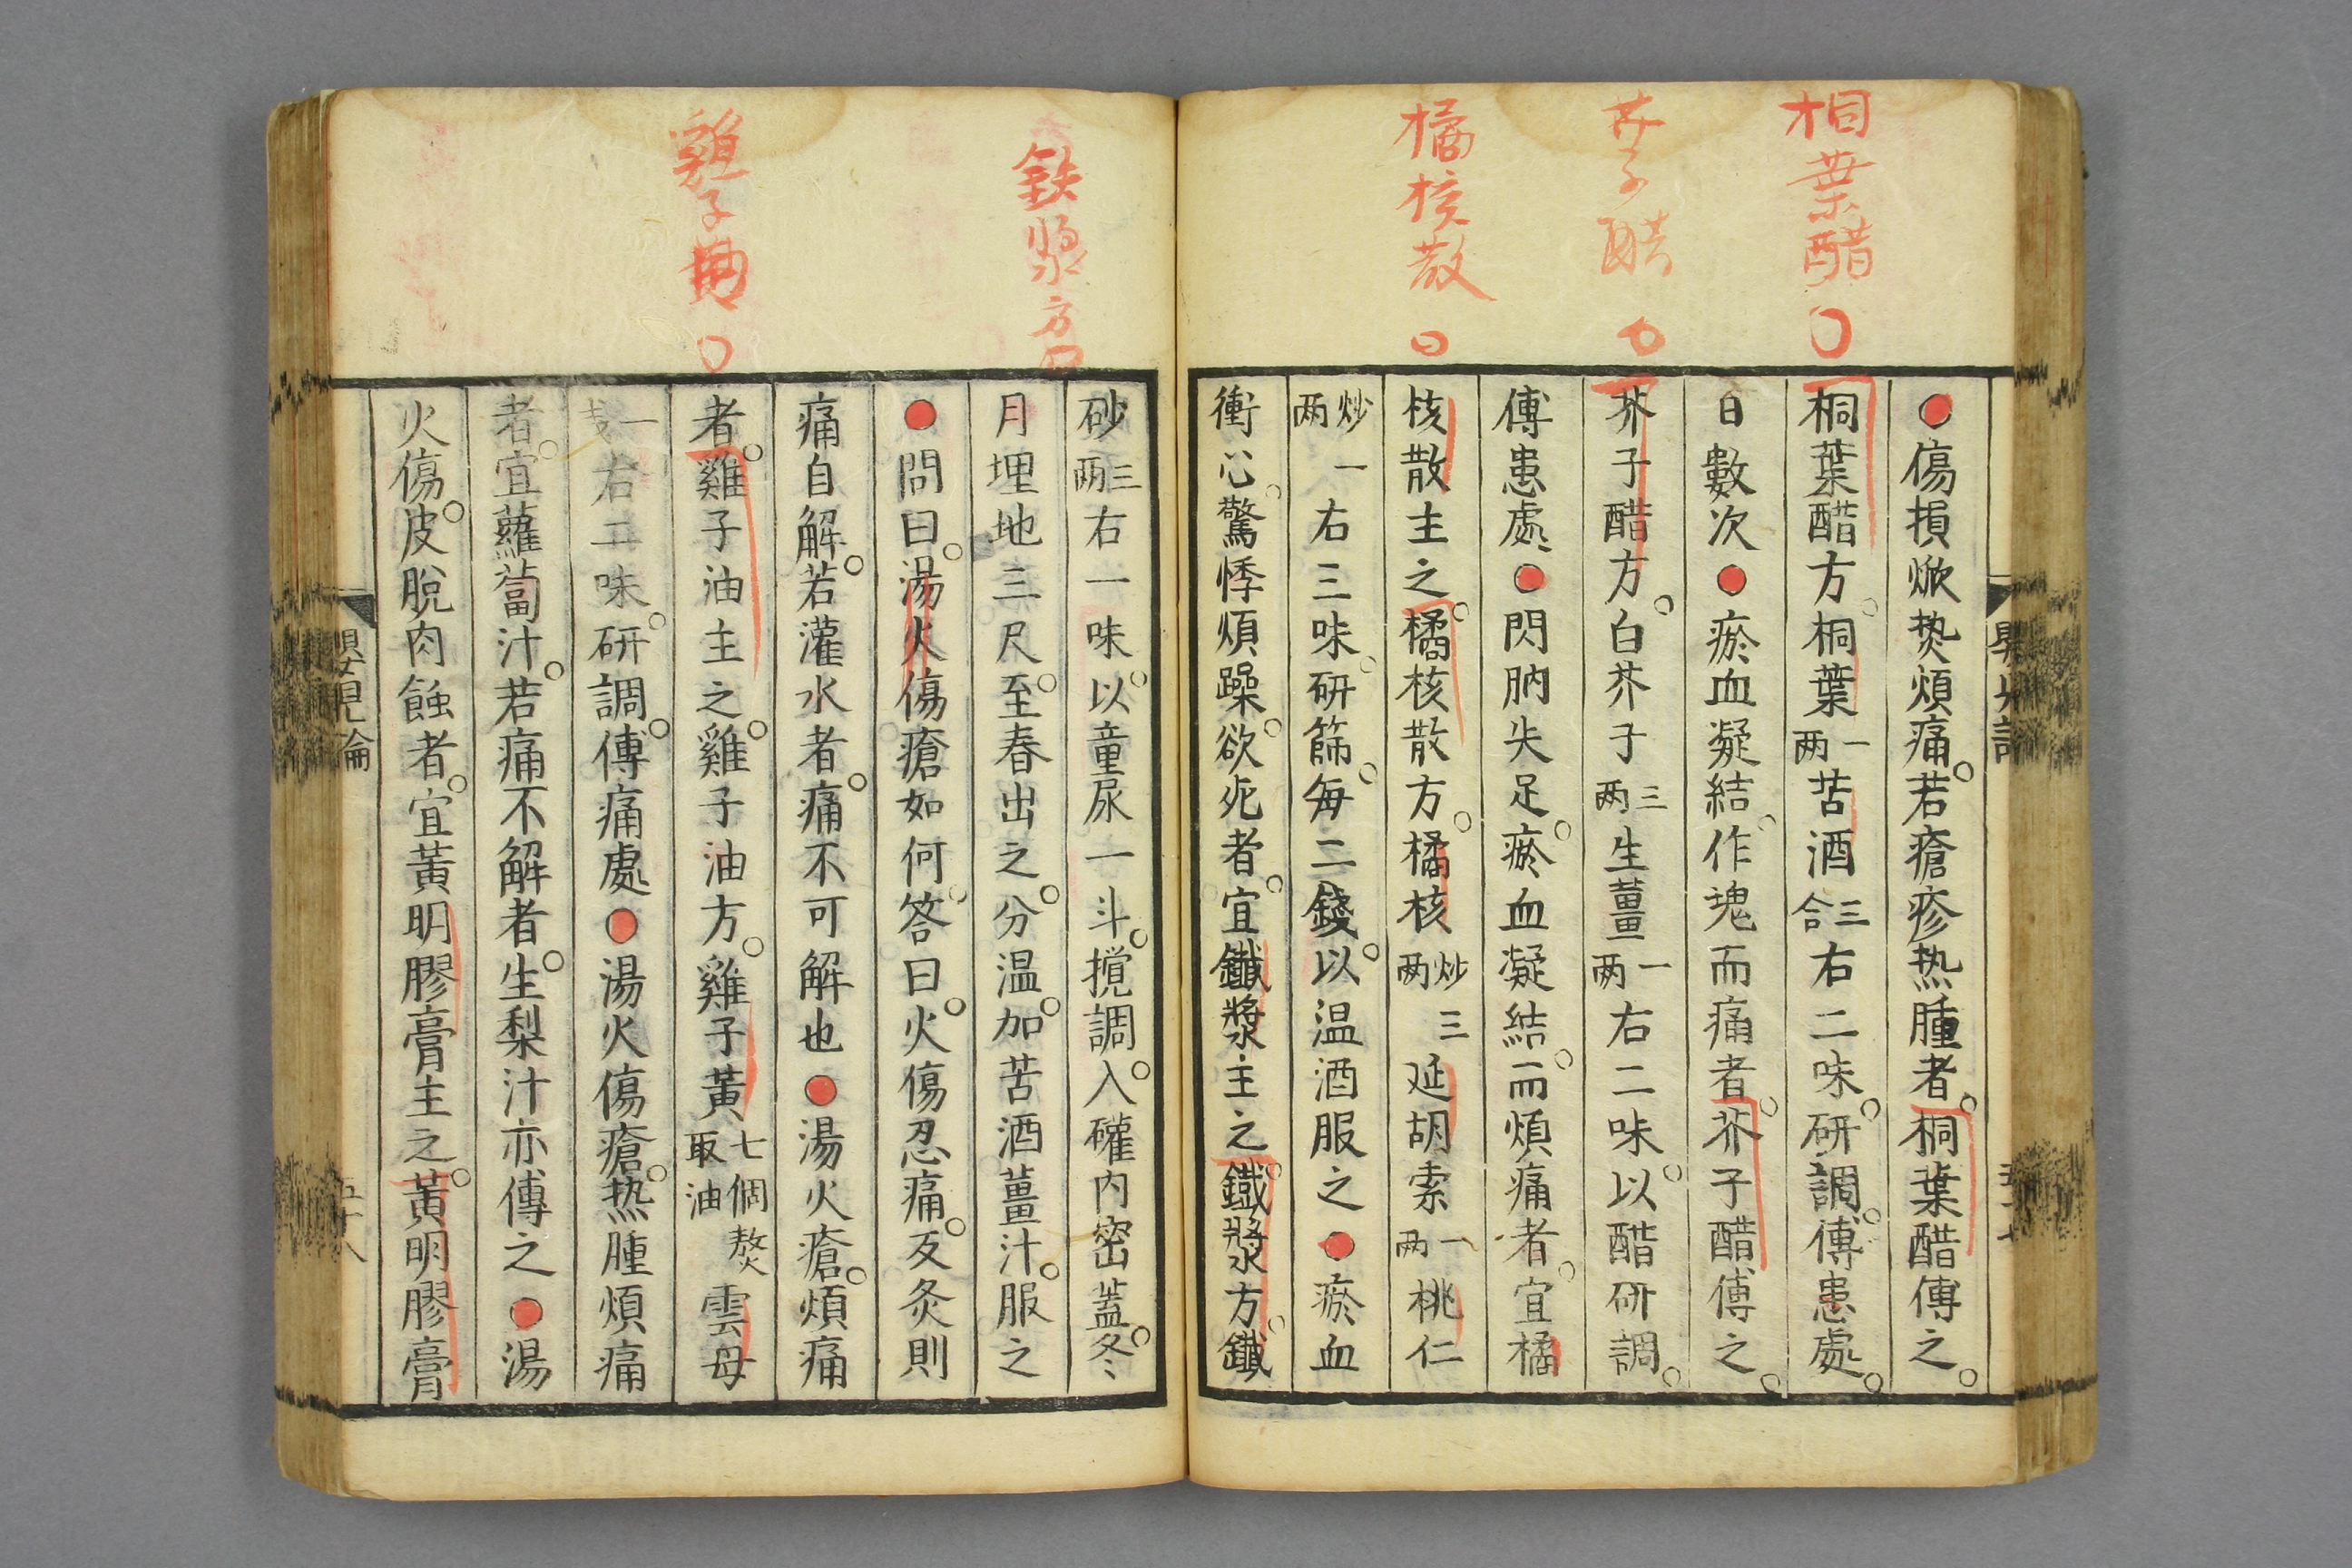 桐葉醋
芥子醋
橘核散
●傷損焮热煩痛。若瘡疹热腫者。桐葉醋傅之。
桐葉醋方。桐葉一两苦酒三合右二味。研調。傅患處。
日數次●瘀血凝結。作塊而痛者。芥子醋傅之。
芥子醋方。白芥子三两生薑一两右二味。以醋研調。
傅患處、●閃肭失足。瘀血凝結。而煩痛者。宜橘
核散主之。橘核散方。橘核炒三两延胡索一两桃仁
炒一两右三味。研篩。每二錢。以温酒服之●瘀血
衝心。驚悸煩躁。欲死者。宜鐵漿主之。鐵漿方。鐵
鉄漿方
雞子黄
砂三两右一味。以童尿一斗。攪調。入礶内密蓋。冬、
月埋地三尺。至春出之。分温。加苦酒薑汁。服之
●問曰。湯火傷瘡如何。答曰。火傷忍痛。反灸則
痛自解。若灌水者。痛不可解也●湯火瘡。煩痛
者。雞子油主之。雞子油方。雞子黄七個熬取油雲母
一戔右二味。研調。傅痛處●湯火傷瘡。热腫煩痛
者。宜蘿蔔汁。若痛不解者。生梨汁亦傅之●湯
火傷。皮脫肉蝕者。宜黄明膠膏主之。黄明膠膏
嬰児論
五十八